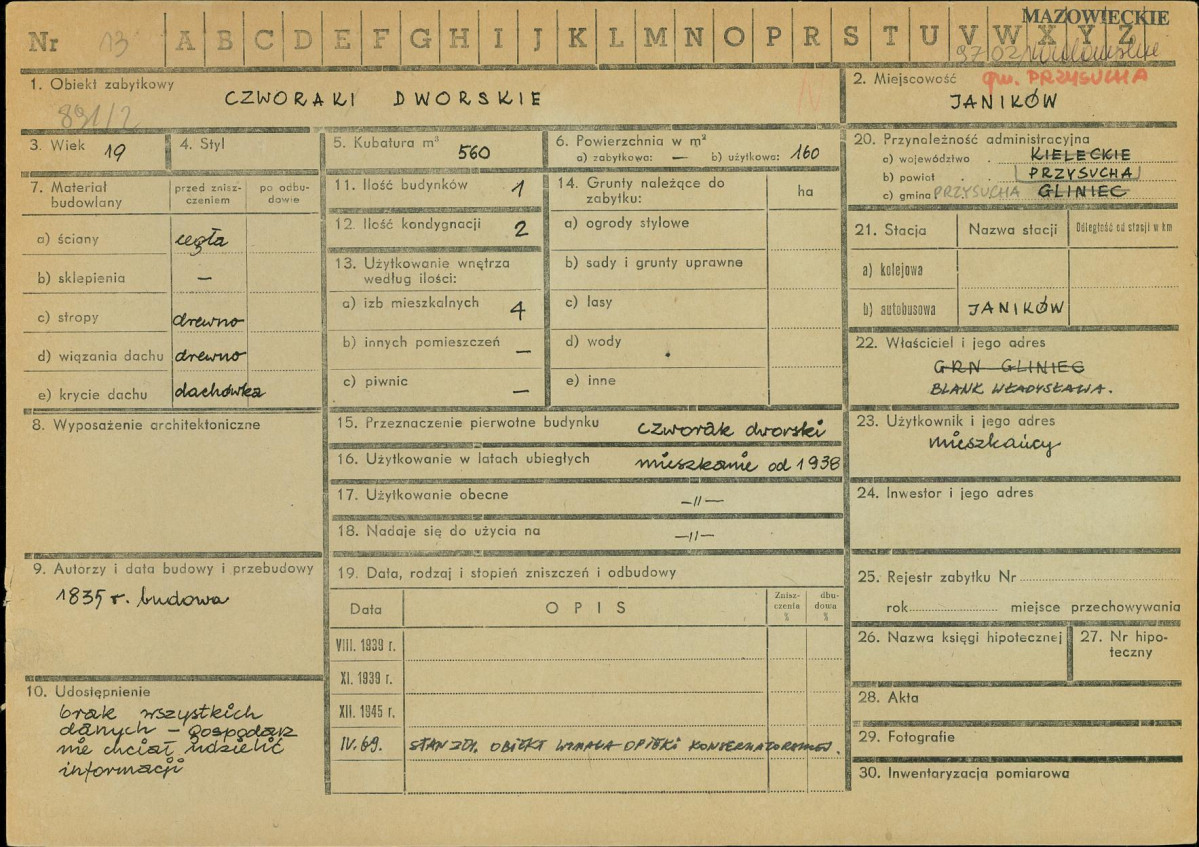 MAZOWIECKIE
Nr 13 A B C D E F G H I J K L M N O P R S T U V W X Y Z
1. Obiekt zabytkowy
CZWORAKI DWORSKIE
891/2
N
2. Miejscowość gm. PRZYSUCHA
JANIKÓW
3. Wiek 19
4. Styl
5. Kubatura m³ 560
6. Powierzchnia w m²
a) zabytkowa: — b) użytkowa: 160
7. Materiał budowlany
przed znisz-
czeniem
po odbu-
dowie
a) ściany cegła
b) sklepienia —
c) stropy drewno
d) wiązania dachu drewno
e) krycie dachu dachówka
8. Wyposażenie architektoniczne
9. Autorzy i data budowy i przebudowy
1835 r. budowa
10. Udostępnienie
brak wszystkich
danych – gospodarz
nie chciał udzielić
informacji
11. Ilość budynków 1
12. Ilość kondygnacji 2
13. Użytkowanie wnętrza
według ilości:
a) izb mieszkalnych 4
b) innych pomieszczeń —
c) piwnic —
14. Grunty należące do
zabytku:
ha
a) ogrody stylowe
b) sady i grunty uprawne
c) lasy
d) wody
e) inne
15. Przeznaczenie pierwotne budynku czworak dworski
16. Użytkowanie w latach ubiegłych mieszkanie od 1938
17. Użytkowanie obecne —〃—
18. Nadaje się do użycia na —〃—
19. Data, rodzaj i stopień zniszczeń i odbudowy
Data
OPIS
Znisz-
czenia
%
dbu-
dowa
%
VIII. 1939 r.
XI. 1939 r.
XII. 1945 r.
IV. 69. STAN ZŁY. OBIEKT WYMAGA OPIEKI KONSERWATORSKIEJ.
20. Przynależność administracyjna
a) województwo . KIELECKIE
b) powiat . . PRZYSUCHA
c) gmina PRZYSUCHA GLINIEC
21. Stacja
Nazwa stacji
Odległość od stacji w km
a) kolejowa
b) autobusowa JANIKÓW
22. Właściciel i jego adres
GRN GLINIEC
BLANK WŁADYSŁAWA.
23. Użytkownik i jego adres
mieszkańcy
24. Inwestor i jego adres
25. Rejestr zabytku Nr
rok miejsce przechowywania
26. Nazwa księgi hipotecznej
27. Nr hipo-
teczny
28. Akta
29. Fotografie
30. Inwentaryzacja pomiarowa